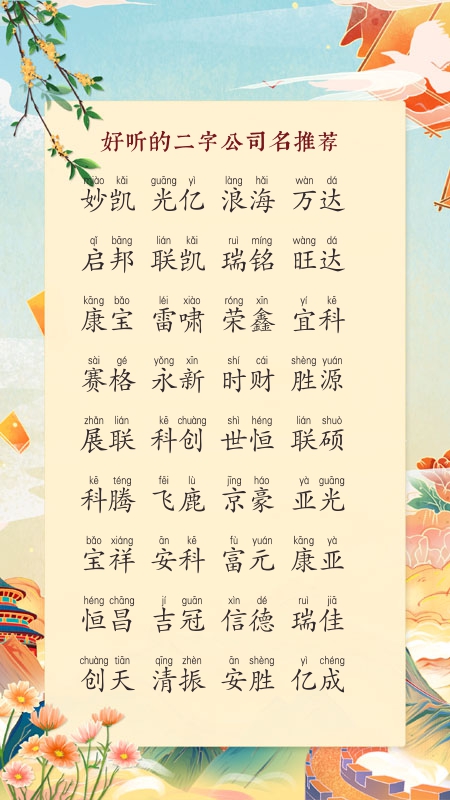 好听的二字公司名推荐
miào kǎi guāng yì làng hǎi wàn dá
妙凯 光亿 浪海 万达
qǐ bāng lián kǎi ruì míng wàng dá
启邦 联凯 瑞铭 旺达
kāng bǎo léi xiào róng xīn yí kē
康宝 雷啸 荣鑫 宜科
sài gé yǒng xīn shí cái shèng yuán
赛格 永新 时财 胜源
zhǎn lián kē chuàng shì héng lián shuò
展联 科创 世恒 联硕
kē téng fēi lù jīng háo yà guāng
科腾 飞鹿 京豪 亚光
bǎo xiáng ān kē fù yuán kāng yà
宝祥 安科 富元 康亚
héng chāng jí guān xìn dé ruì jiā
恒昌 吉冠 信德 瑞佳
chuàng tiān qīng zhèn ān shèng yì chéng
创天 清振 安胜 亿成